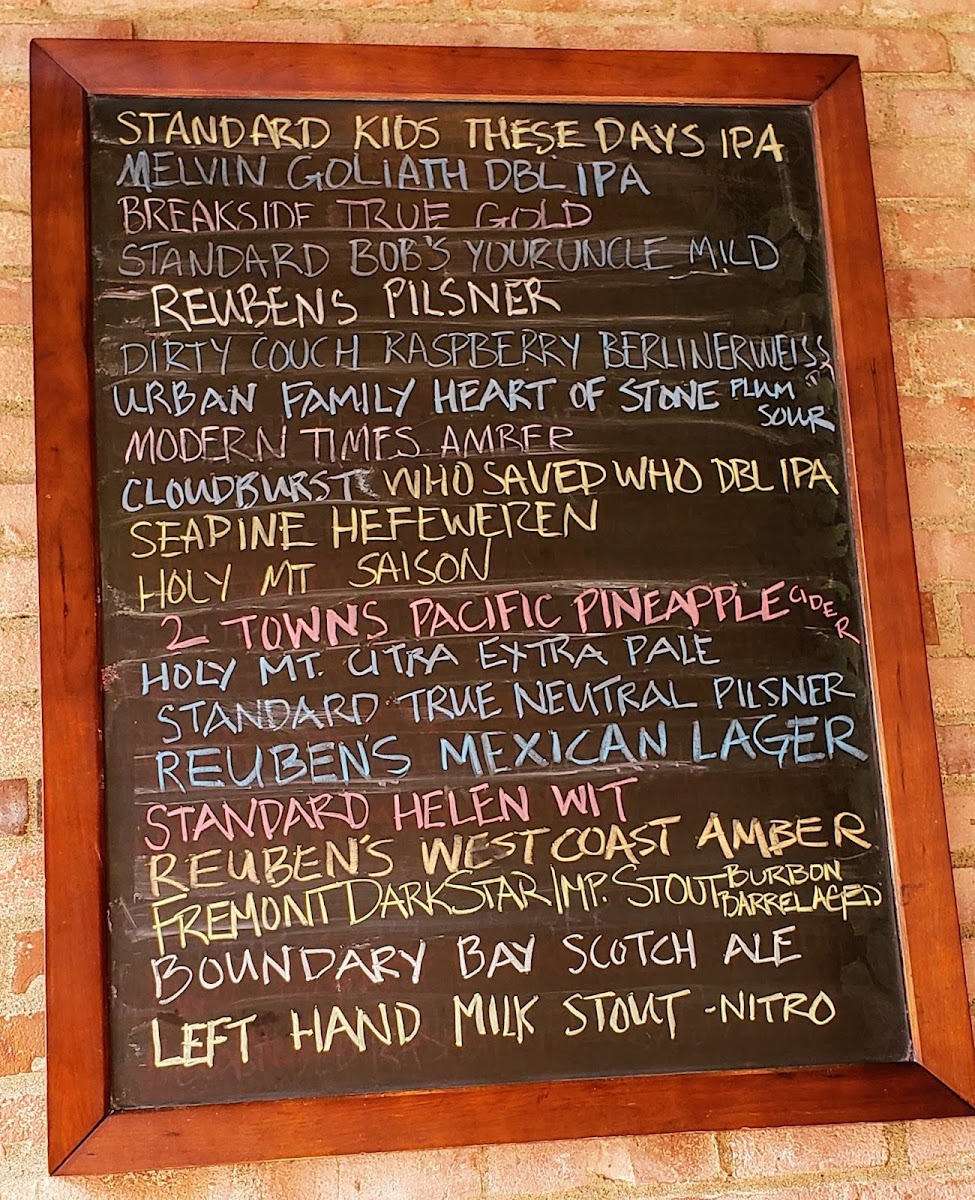 STANDARD KIDS THESE DAYS IPA
MELVIN GOLIATH DBL IPA
BREAKSIDE TRUE GOLD
STANDARD BOB'S YOUR UNCLE MILD
REUBENS PILSNER
DIRTY COUCH RASPBERRY BERLINERWEISS
URBAN FAMILY HEART OF STONE PLUM
SOUR
MODERN TIMES AMBER
CLOUDBURST WHO SAVED WHO DBL IPA
SEAPINE HEFEWEIZEN
HOLY MT SAISON
2 TOWNS PACIFIC PINEAPPLE CIDER
HOLY MT. CITRA EXTRA PALE
STANDARD TRUE NEUTRAL PILSNER
REUBEN'S MEXICAN LAGER
STANDARD HELEN WIT
REUBEN'S WEST COAST AMBER
FREMONT DARK STAR IMP. STOUT BURBON
BARREL AGED
BOUNDARY BAY SCOTCH ALE
LEFT HAND MILK STOUT -NITRO